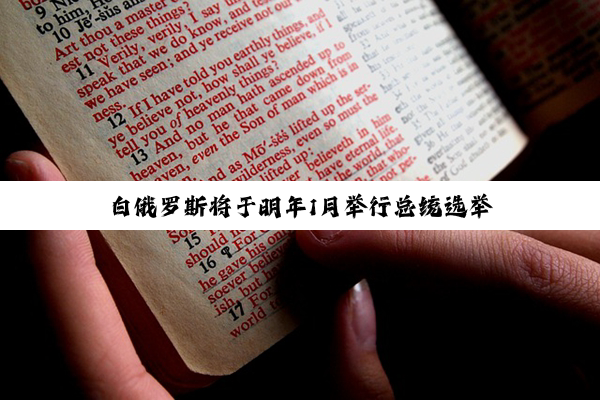 to him,
10 Jē'-šŭs
Art thou a master
est not these things?
11 Verily, verily, I say
speak that we do know, and
we have seen; and ye receive not our
ness.
12 If I have told you earthly things, and
ye believe not, how shall ye believe, if I
tell you of heavenly things?
13 And no man hath ascended up to
heaven, but he that came down from
heaven, even the Son of man which is in
and as Mō'-šĕš lifted up the ser-
wilderness, even so must the
lifted up:
believeth in him
have eternal life.
the world, that
白俄罗斯将于明年1月举行总统选举
15
should
16 ¶ For
he gave his on
soever believe
ish, but
17 For
world